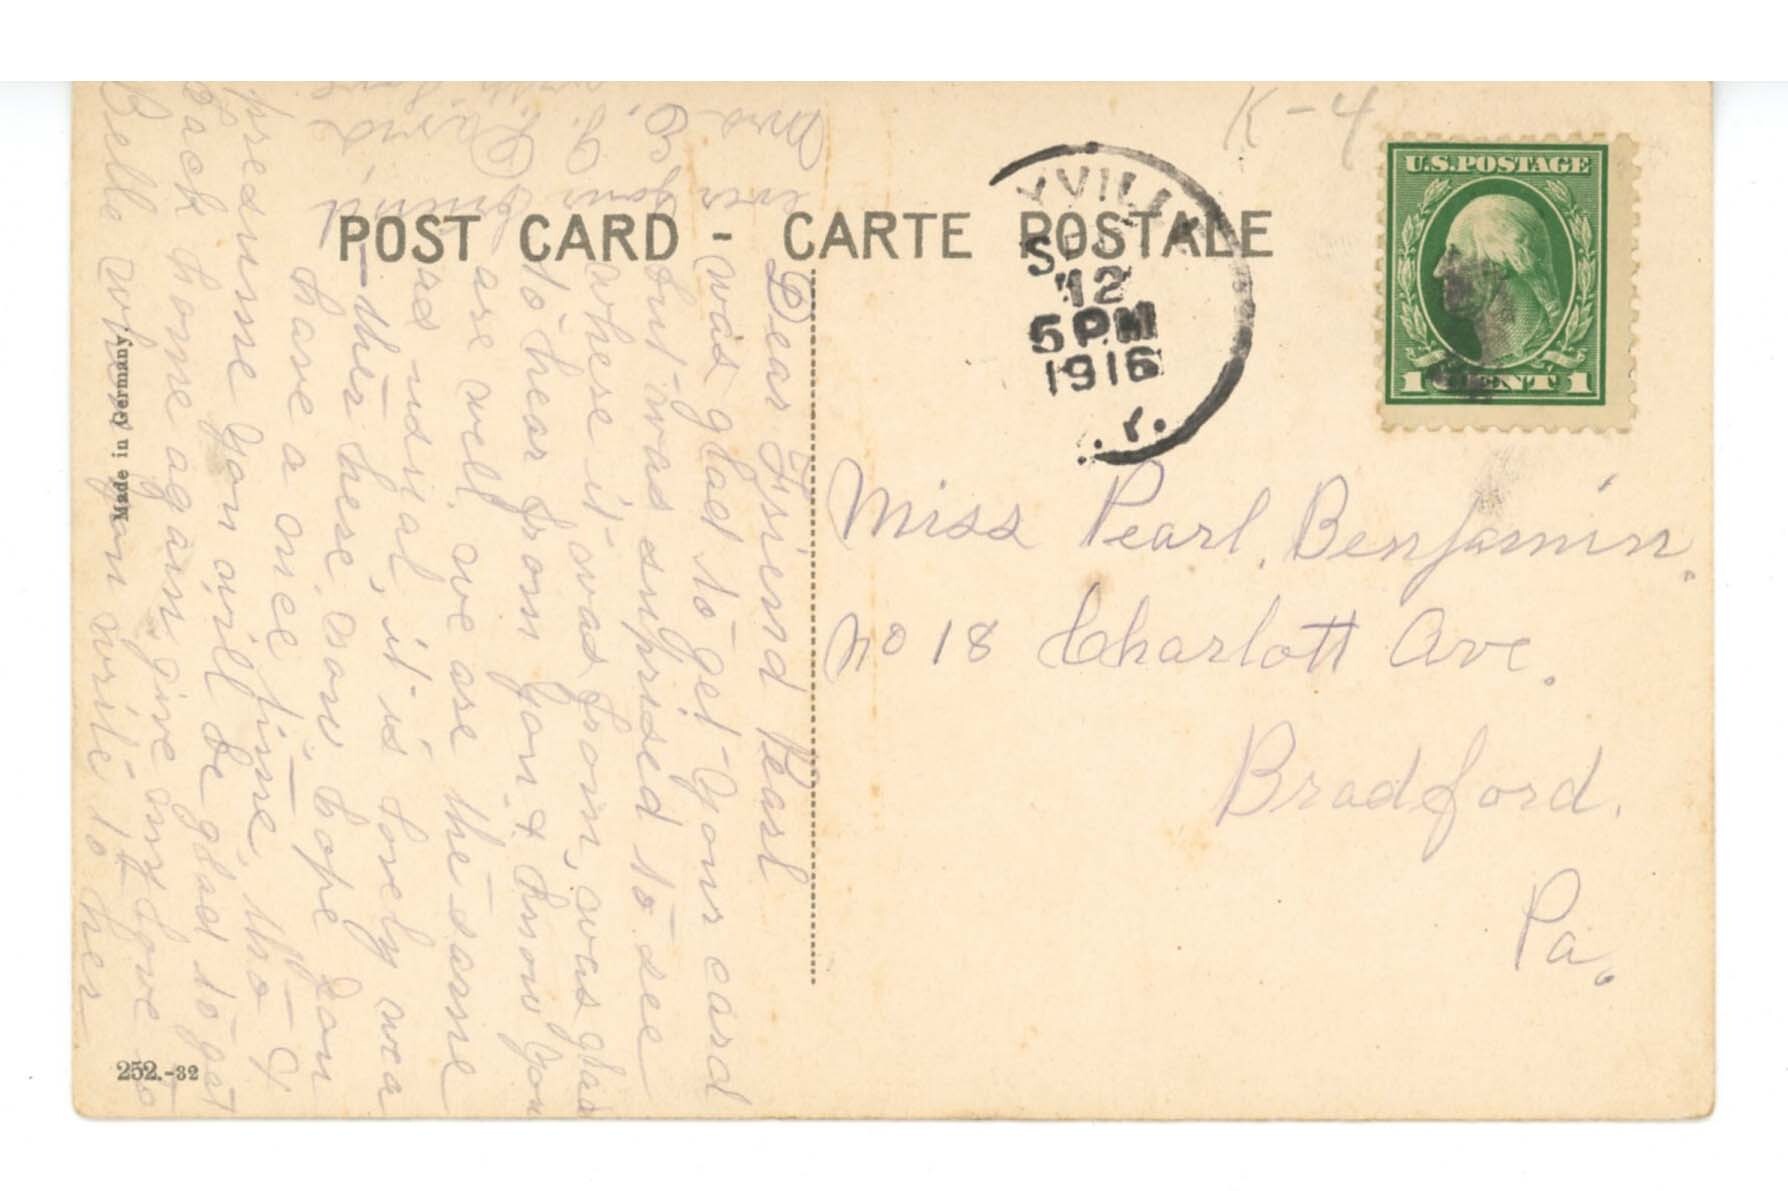 K-4
POST CARD - CARTE POSTALE
YVILL
SEP
12
5 PM
1916
.Y.
U.S.POSTAGE
1 CENT 1
Miss Pearl Benjamin.
No 18 Charlott Ave.
Bradford.
Pa.
Dear Friend Pearl
was glad to get your card
but was suprised to see
where it was from, was glad
to hear from you & know you
are well, we are the same
as usual, it is lovely wea
-ther here now, hope you
have a once time, tho I
presume you will be glad to get
back home again, give my love to
Belle when you write to her
ever your friend
Mrs
with love
Made in Germany
252.-32